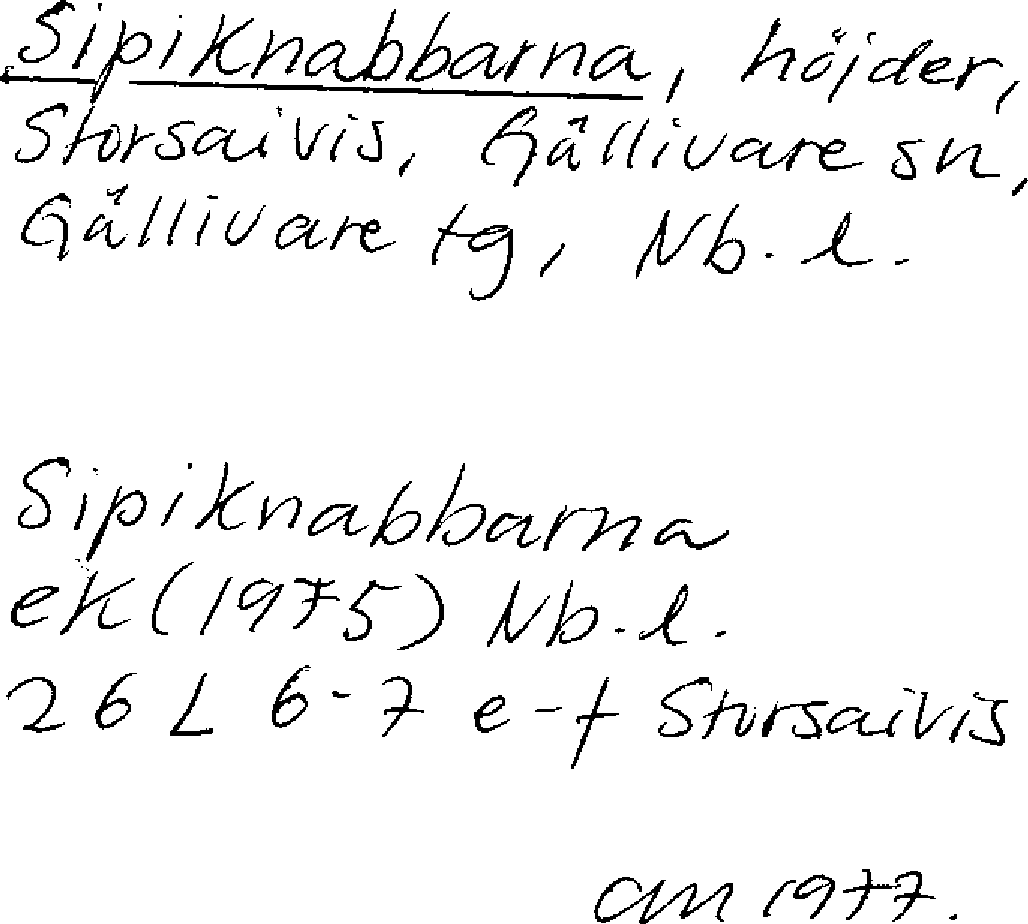 Sipiknabbarna, höjder,
Storsaivis, Gällivare sn,
Gällivare tg, Nb. l.
Sipiknabbarna
ek (1975) Nb. l.
26 L 6-7 e-f Storsaivis
am 1977.